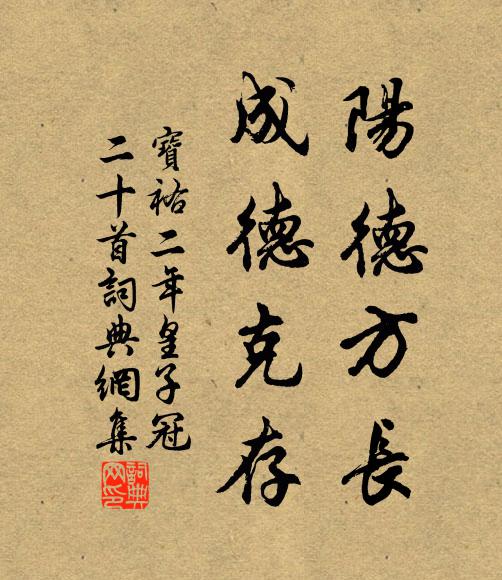 陽德方長
成德克存
寶祐二年皇子冠
二十首詞典網集
詞典網印